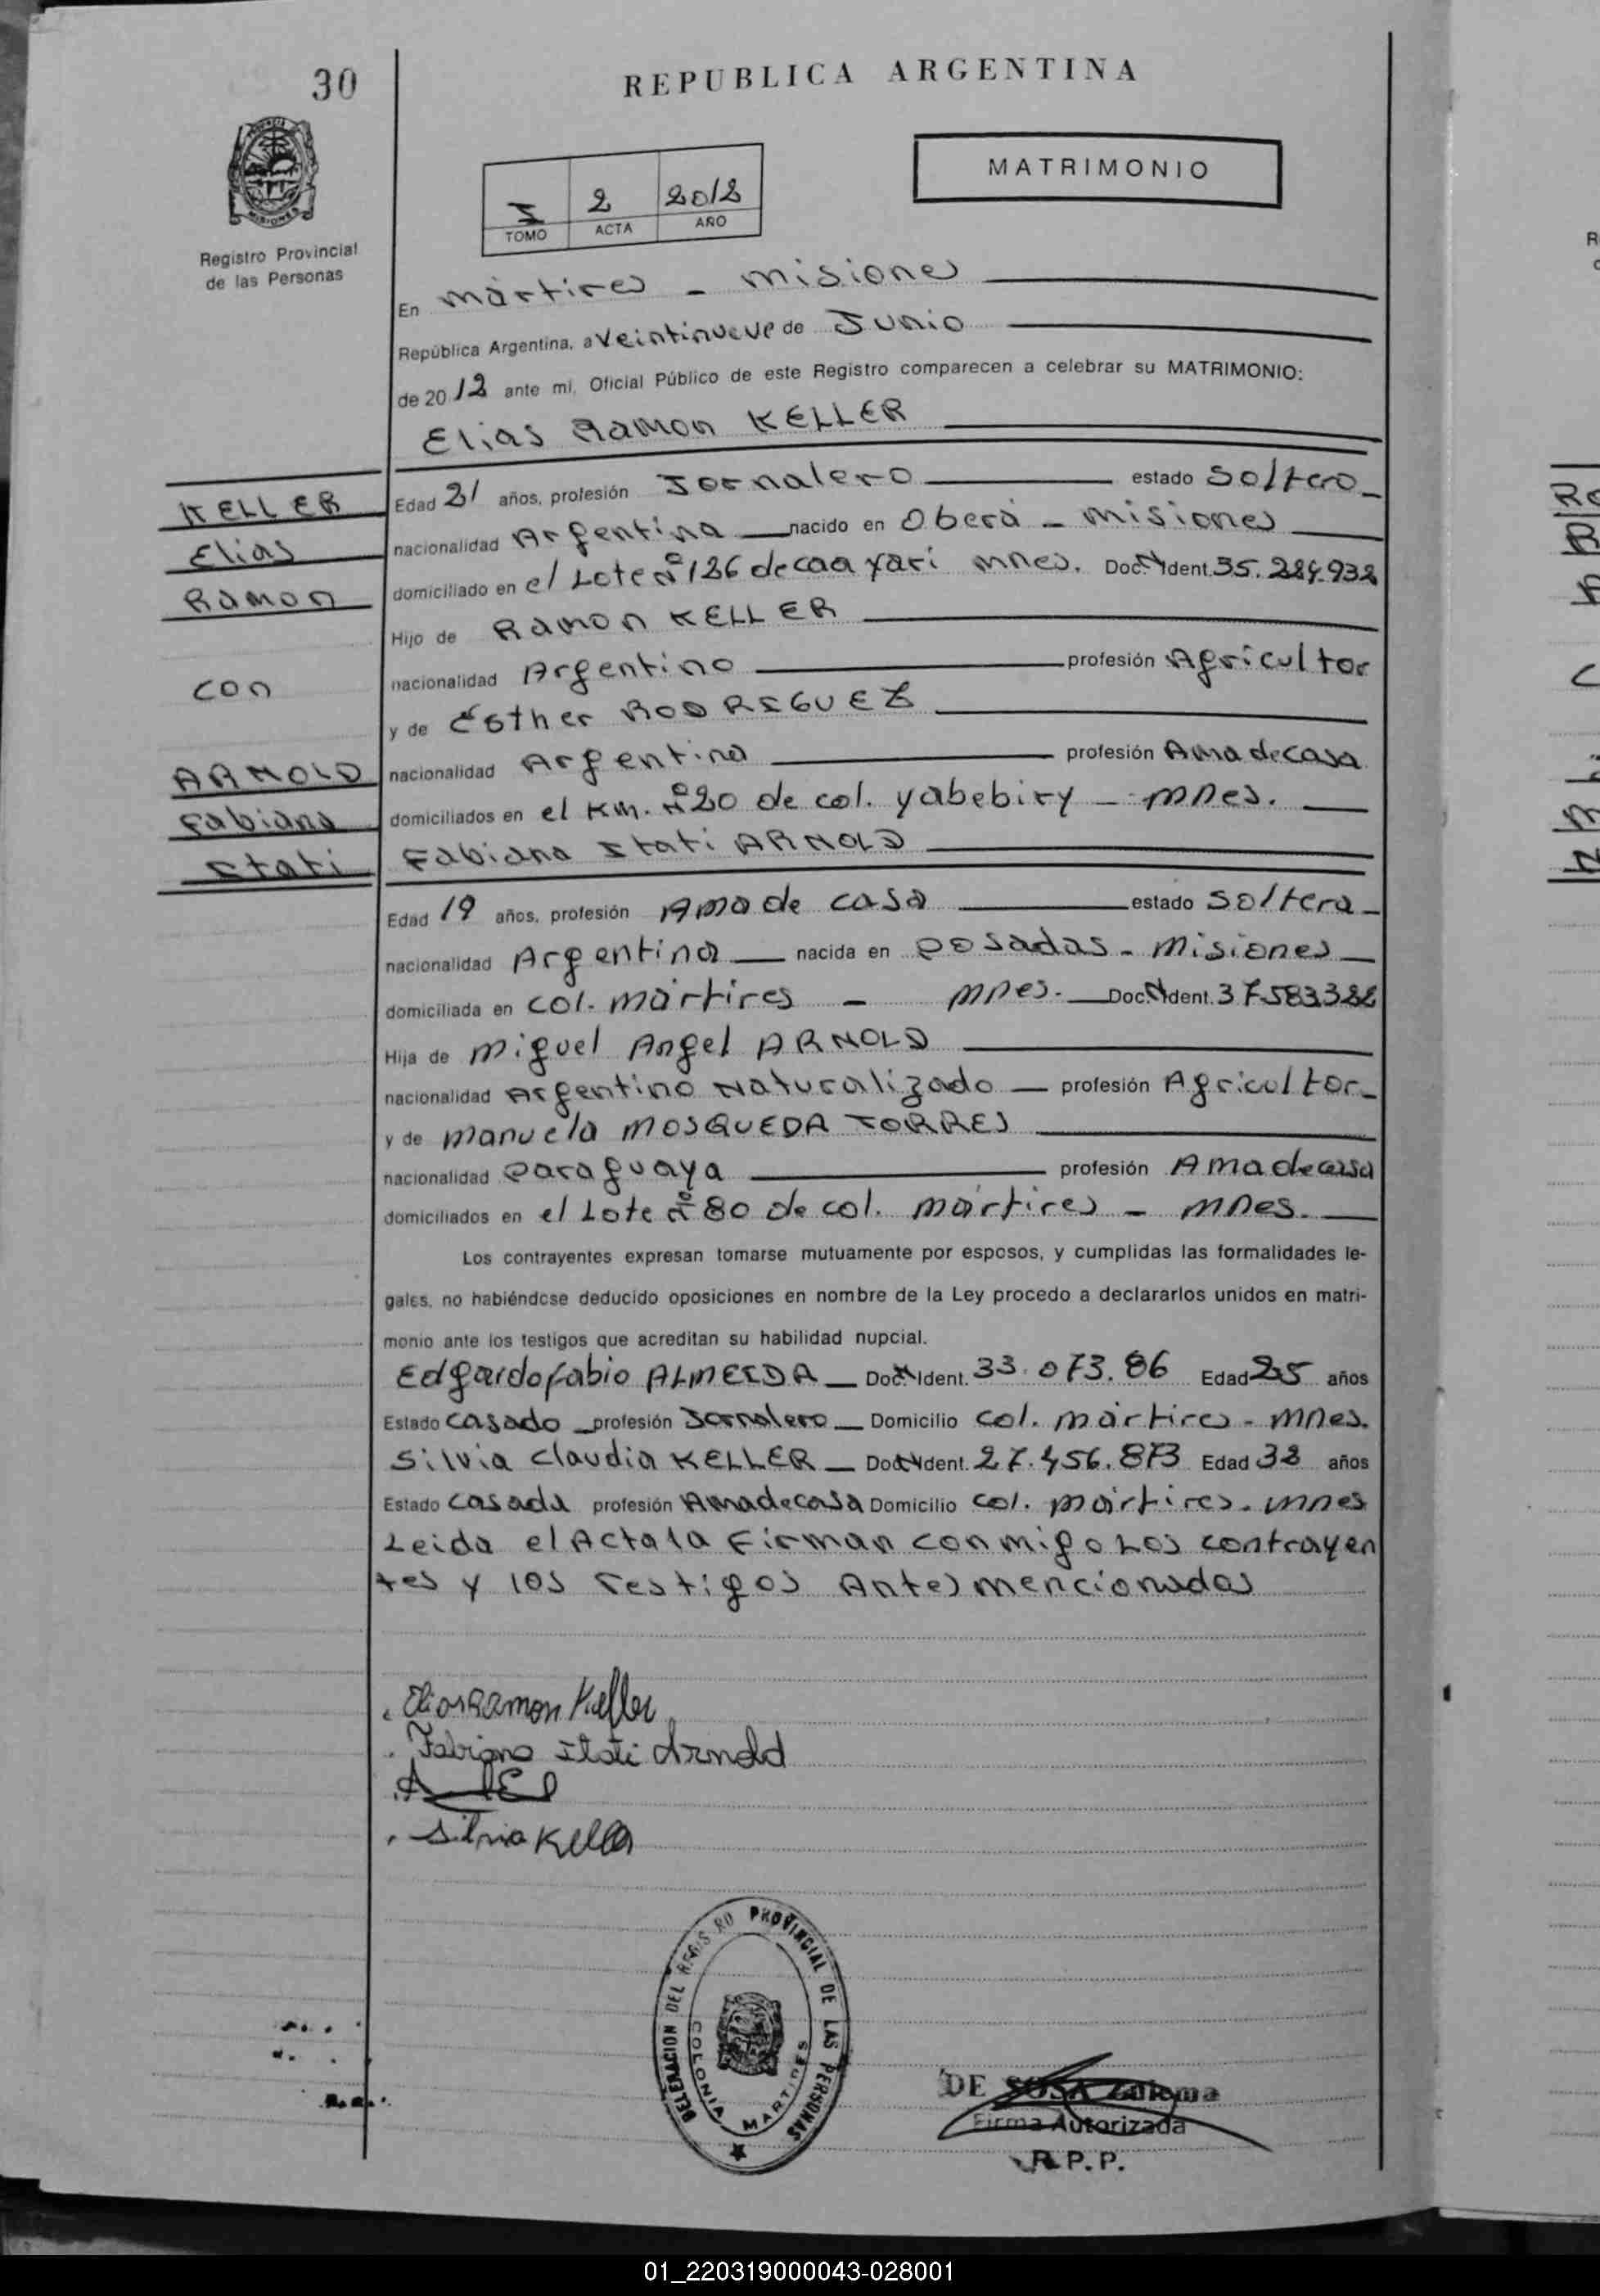 30
REPUBLICA ARGENTINA
MATRIMONIO
I 2 2012
TOMO ACTA AÑO
Registro Provincial
de las Personas
En Mártires - Misiones
República Argentina, a Veintinueve de Junio
de 2012 ante mi, Oficial Público de este Registro comparecen a celebrar su MATRIMONIO:
Elias Ramon KELLER
KELLER
Elias
Ramon
con
ARNOLD
Fabiana
Itati
Edad 21 años, profesión Jornalero estado Soltero
nacionalidad Argentina nacido en Oberá - Misiones
domiciliado en el Lote Nº 126 de caa yari Mnes. Doc. N Ident. 35.284.932
Hijo de Ramon KELLER
nacionalidad Argentino profesión Agricultor
y de Esther RODRIGUEZ
nacionalidad Argentina profesión Ama de casa
domiciliados en el Km. Nº 20 de col. yabebiry - Mnes.
Fabiana Itati ARNOLD
Edad 19 años, profesión Ama de casa estado Soltera
nacionalidad Argentina nacida en Posadas - Misiones
domiciliada en col. Mártires - Mnes. Doc. N Ident. 37.583.388
Hija de Miguel Angel ARNOLD
nacionalidad Argentino Naturalizado profesión Agricultor
y de Manuela MOSQUEDA TORRES
nacionalidad Paraguaya profesión Ama de casa
domiciliados en el Lote Nº 80 de col. Mártires - Mnes.
Los contrayentes expresan tomarse mutuamente por esposos, y cumplidas las formalidades le-
gales, no habiéndose deducido oposiciones en nombre de la Ley procedo a declararlos unidos en matri-
monio ante los testigos que acreditan su habilidad nupcial.
Edgardo Fabio ALMEIDA Doc. N Ident. 33.073.86 Edad 25 años
Estado casado profesión Jornalero Domicilio col. Mártires - Mnes.
Silvia Claudia KELLER Doc. N Ident. 27.456.873 Edad 32 años
Estado casada profesión Ama de casa Domicilio col. Mártires - Mnes
Leida el Acta la Firman conmigo Los contrayen
tes y los Testigos Antes mencionados
Elias Ramon Keller
Fabiana Itati Arnold
Silvia Keller
DELEGACION DEL REGISTRO PROVINCIAL DE LAS PERSONAS
COLONIA MARTIRES
DE SOSA Zulema
Firma Autorizada
R.P.P.
01_220319000043-028001